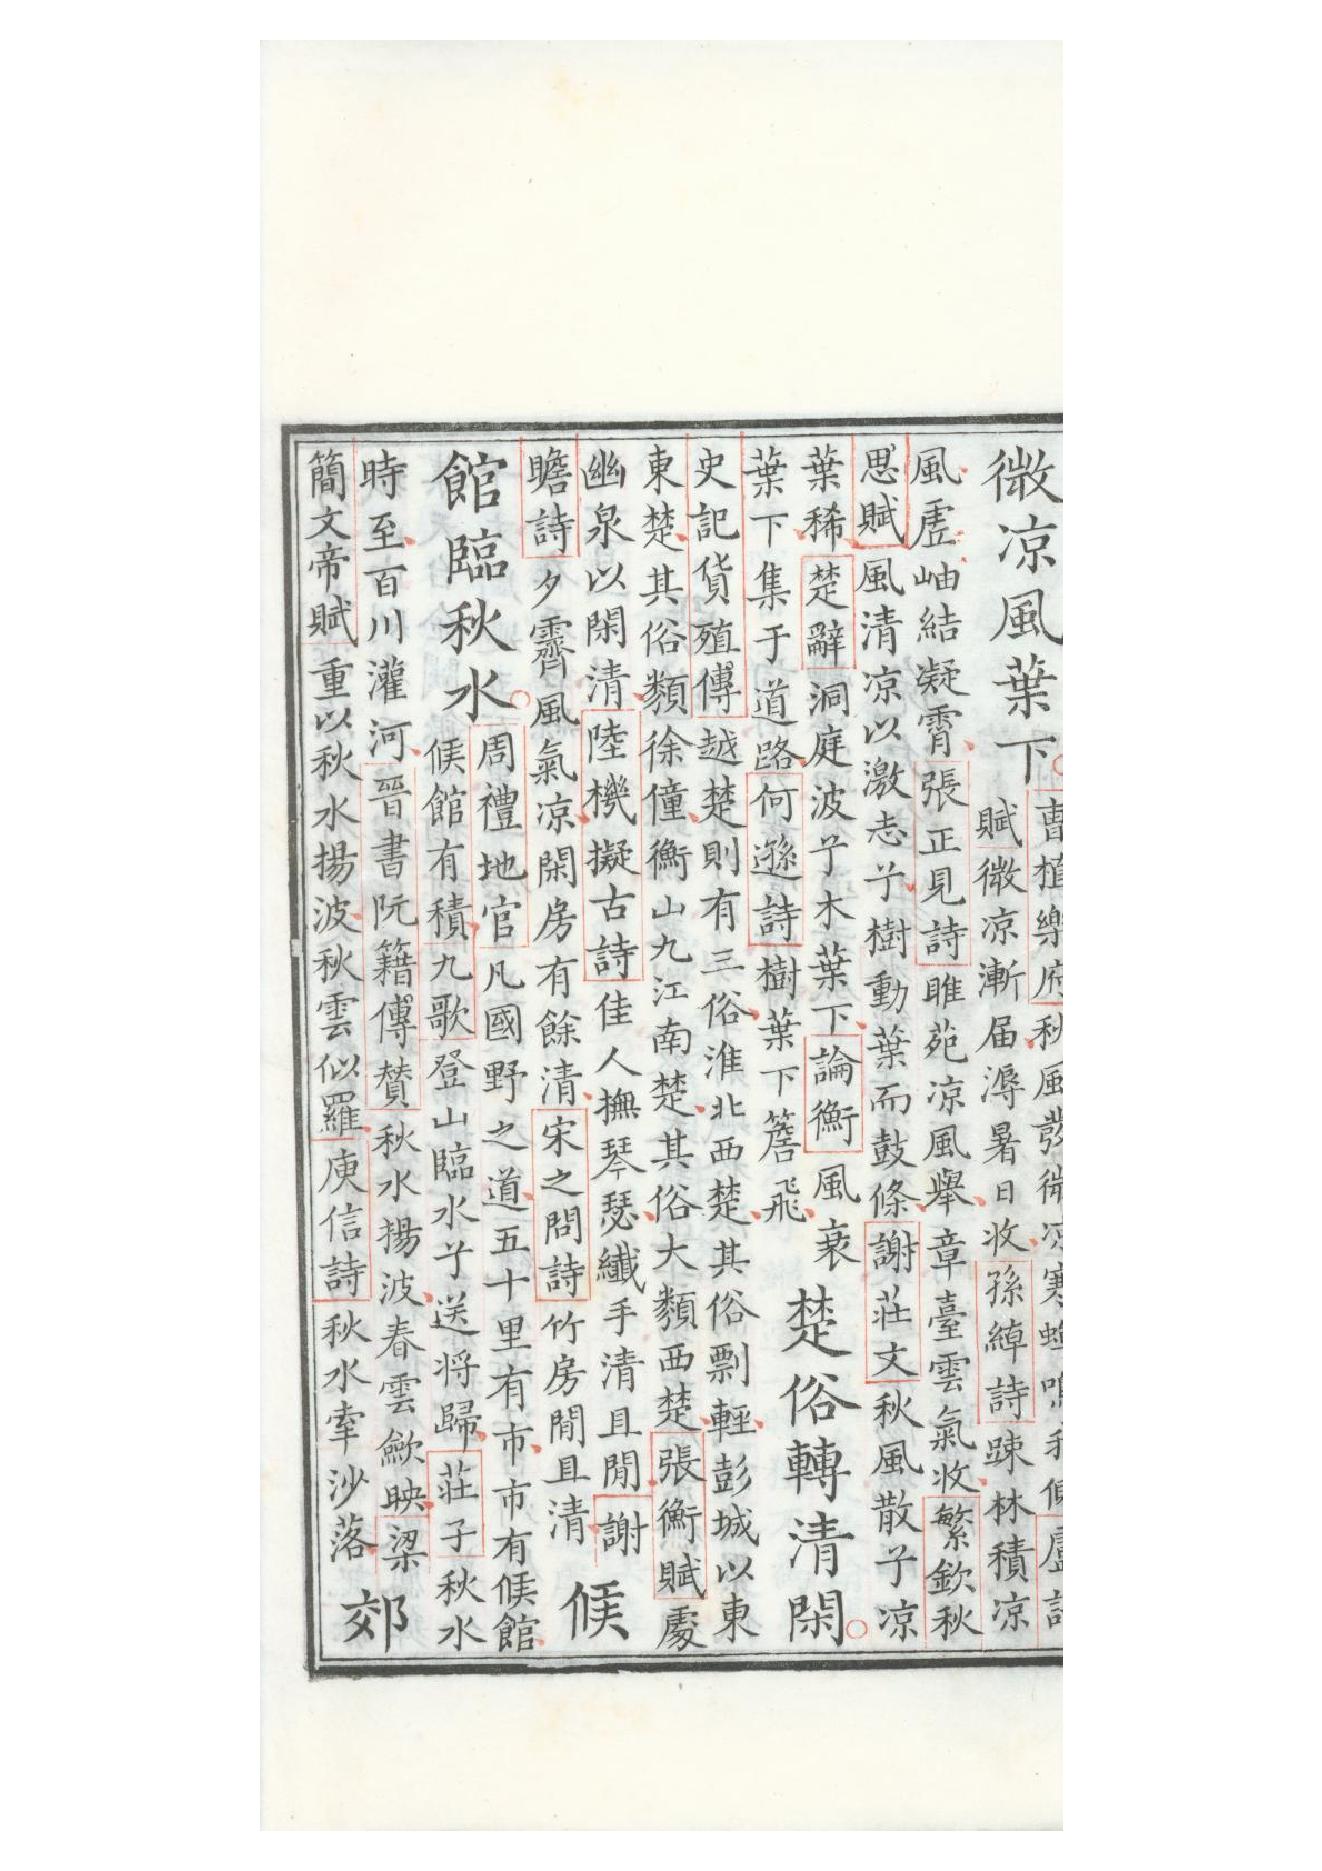 微凉風葉下
曹植樂府秋風發微凉寒蟬鳴我側盧
賦微凉漸届溽暑日收孫綽詩踈林積凉
風虗岫結凝霄張正見詩睢苑凉風舉章臺雲氣收繁欽秋
思賦風清凉以激志兮樹動葉而鼓條謝莊文秋風散兮凉
葉稀楚辭洞庭波兮木葉下論衡風衰
葉下集于道路何遜詩樹葉下簷飛
楚俗轉清閑
史記貨殖傳越楚則有三俗淮北西楚其俗剽輕彭城以東
東楚其俗類徐僮衡山九江南楚其俗大類西楚張衡賦處
幽泉以閑清陸機擬古詩佳人撫琴瑟纖手清且閒謝
瞻詩夕霽風氣凉閑房有餘清宋之問詩竹房閒且清
候
館臨秋水
周禮地官凡國野之道五十里有市市有候館
候館有積九歌登山臨水兮送将歸莊子秋水
時至百川灌河晉書阮籍傳贊秋水揚波春雲歛映梁
簡文帝賦重以秋水揚波秋雲似羅庾信詩秋水牽沙落
郊